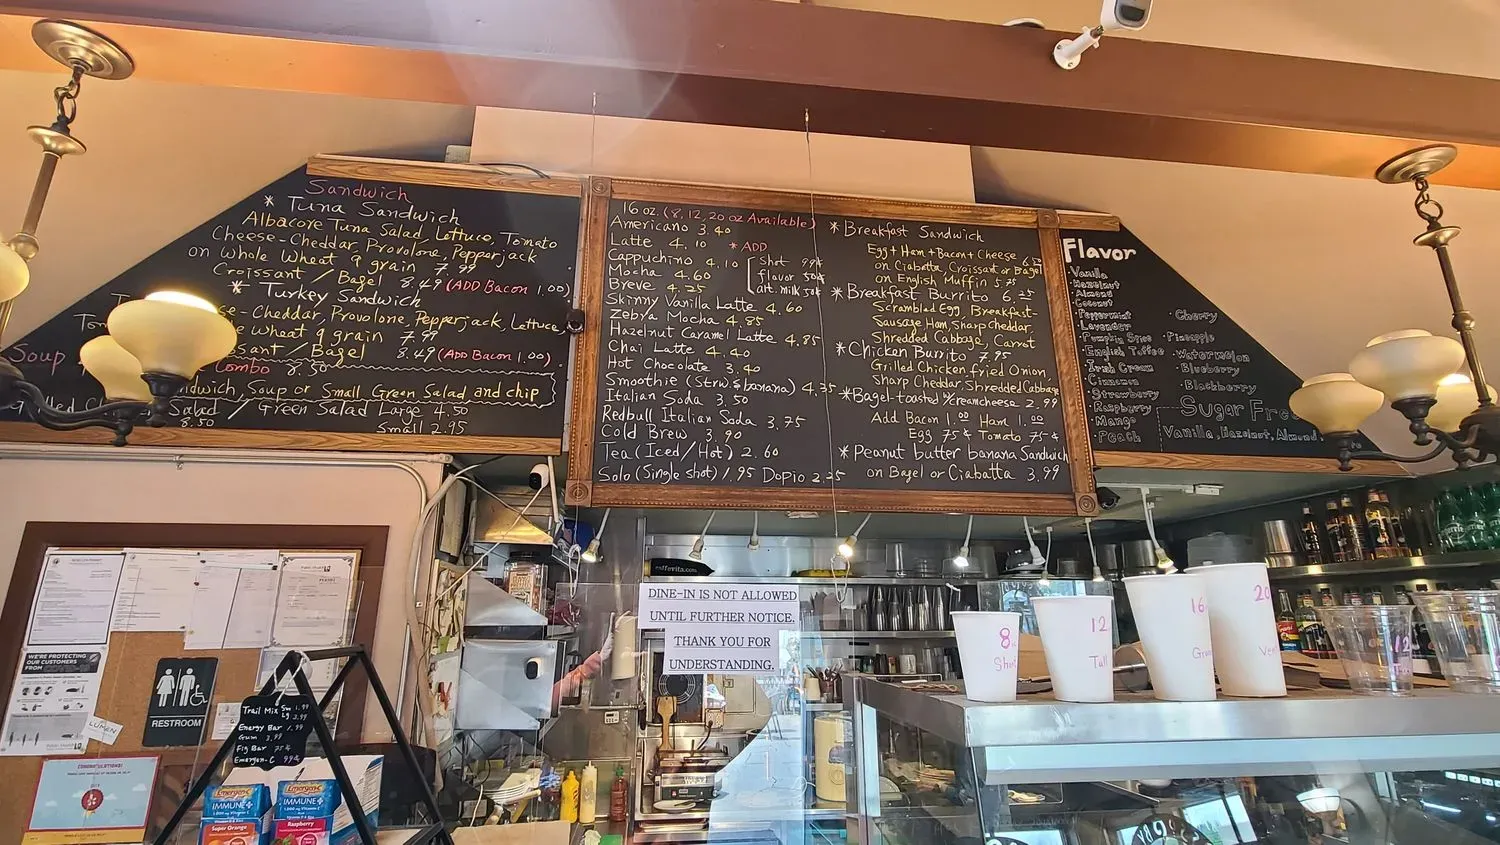 Sandwich
* Tuna Sandwich
Albacore Tuna Salad, Lettuce, Tomato
Cheese - Cheddar, Provolone, Pepperjack
on whole wheat 9 grain 7.99
Croissant / Bagel 8.49 (ADD Bacon 1.00)
* Turkey Sandwich
- Cheddar, Provolone, Pepperjack, Lettuce,
wheat 9 grain 7.99
/ Bagel 8.49 (ADD Bacon 1.00)
Soup
Combo 8.50
Soup or Small Green Salad and chip
Salad / Green Salad Large 4.50
8.50
Small 2.95
16 oz. (8, 12, 20 oz Available)
Americano 3.40
Latte 4.10
Cappuchino 4.10
Mocha 4.60
Breve 4.25
* ADD
Shot 99¢
flavor 50¢
alt. milk 50¢
Skinny Vanilla Latte 4.60
Zebra Mocha 4.85
Hazelnut Caramel Latte 4.85
Chai Latte 4.40
Hot Chocolate 3.40
Smoothie (Strw. & banana) 4.35
Italian Soda 3.50
Redbull Italian Soda 3.75
Cold Brew 3.90
Tea (Iced / Hot) 2.60
Solo (Single shot) 1.95 Dopio 2.25
* Breakfast Sandwich
Egg + Ham + Bacon + Cheese
on Ciabatta, Croissant or Bagel
on English Muffin 5.75
* Breakfast Burrito 6.25
Scrambled Egg, Breakfast-
Sausage Ham, Sharp Cheddar,
Shredded Cabbage, Carrot
* Chicken Burrito 7.95
Grilled Chicken, fried Onion,
Sharp Cheddar, Shredded Cabbage
* Bagel-toasted w/creamcheese 2.99
Add Bacon 1.00 Ham 1.00
Egg 75¢ Tomato 75¢
* Peanut butter banana Sandwich
on Bagel or Ciabatta 3.99
Flavor
· Vanilla
· Hazelnut
· Almond
· Coconut
· Peppermint
· Lavender
· Pumpkin Spice
· English Toffee
· Irish Cream
· Cinnamon
· Strawberry
· Raspberry
· Mango
· Peach
· Cherry
· Pineapple
· Watermelon
· Blueberry
· Blackberry
Sugar Free
Vanilla, Hazelnut, Almond,
caffevita.com
DINE-IN IS NOT ALLOWED
UNTIL FURTHER NOTICE.
THANK YOU FOR
UNDERSTANDING.
8
12
Tall
16
20
12
WE'RE PROTECTING
OUR CUSTOMERS
LUMEN
RESTROOM
CONGRATULATIONS!
Trail Mix Sm 1.99
Lg 3.99
Energy Bar 1.99
Gum 3.99
Fig Bar 75¢
Emergen-C 99¢
Emergen-C
IMMUNE+
Super Orange
Emergen-C
IMMUNE+
Raspberry